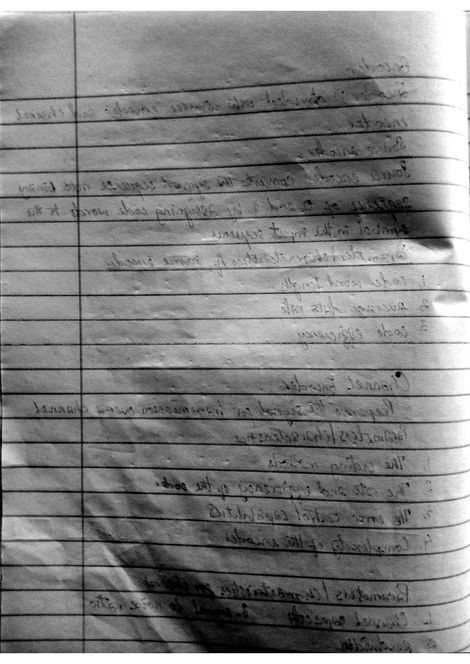 Encoder
encoder
Source encoder
Source encoder converts the symbol sequence into binary
sequence of 0 and 1 by assigning code words to the
symbol in the input sequence
Parameters/characteristics of source encoder
1. code word length
2. average data rate
3. code efficiency
Channel Encoder
Prepares the signal for transmission over a channel
Parameters/characteristics
1. The coding methods
2. The rate and efficiency of the code.
3. The error control capabilities
4. Complexity of the encoder
Parameters/characteristics of channel
1. Channel capacity 3. signal to noise ratio
2. Bandwidth